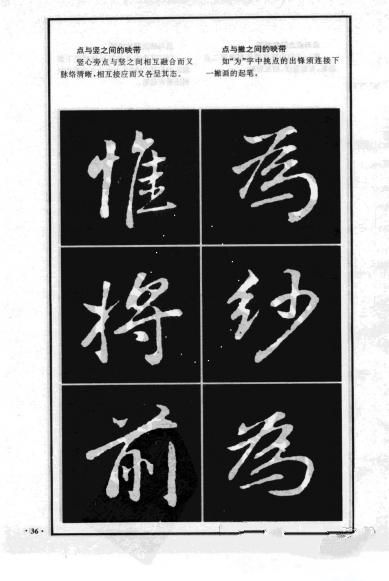 点与竖之间的映带
竖心旁点与竖之间相互融合而又
脉络清晰,相互接应而又各呈其态。
点与撇之间的映带
如“为”字中挑点的出锋须连接下
一撇画的起笔。
惟
為
将
纱
前
為
·36·